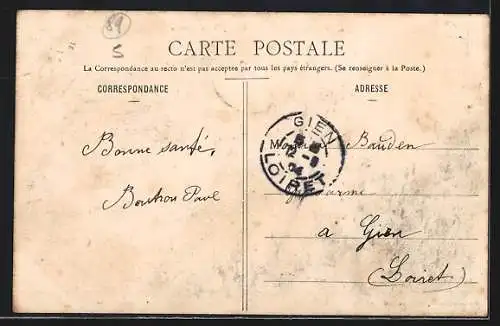 89
S
CARTE POSTALE
La Correspondance au recto n'est pas acceptée par tous les pays étrangers. (Se renseigner à la Poste.)
CORRESPONDANCE
ADRESSE
GIEN
LOIRET
Bonne santé,
Bauden
à Gien
(Loiret)